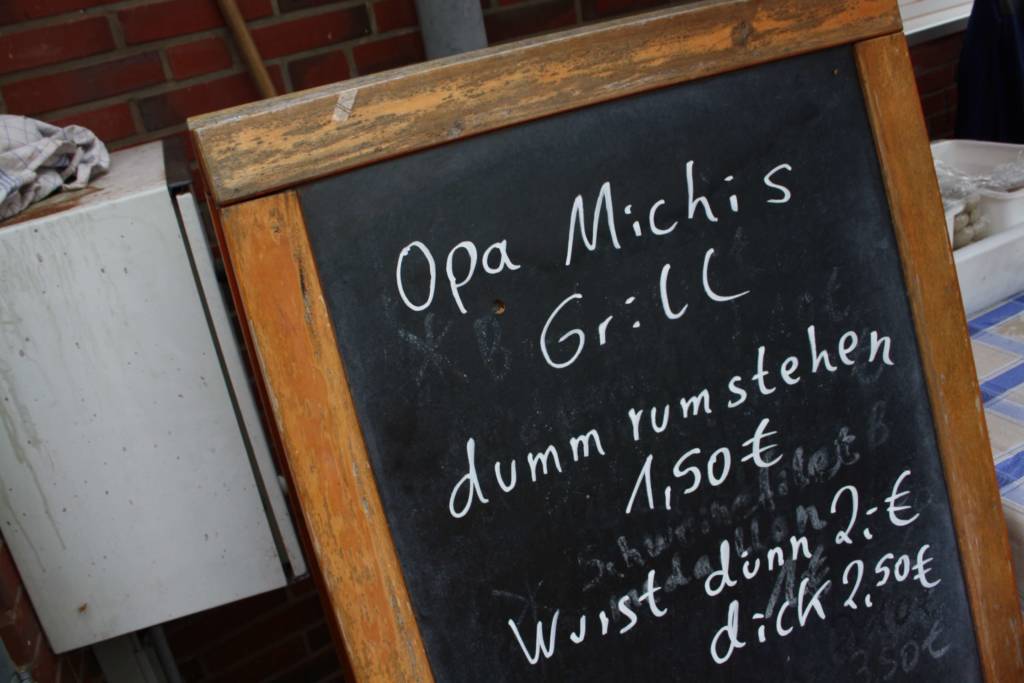 Opa Michis
Grill
dumm rumstehen
1,50€
Wurst dünn 2,-€
dick 2,50€